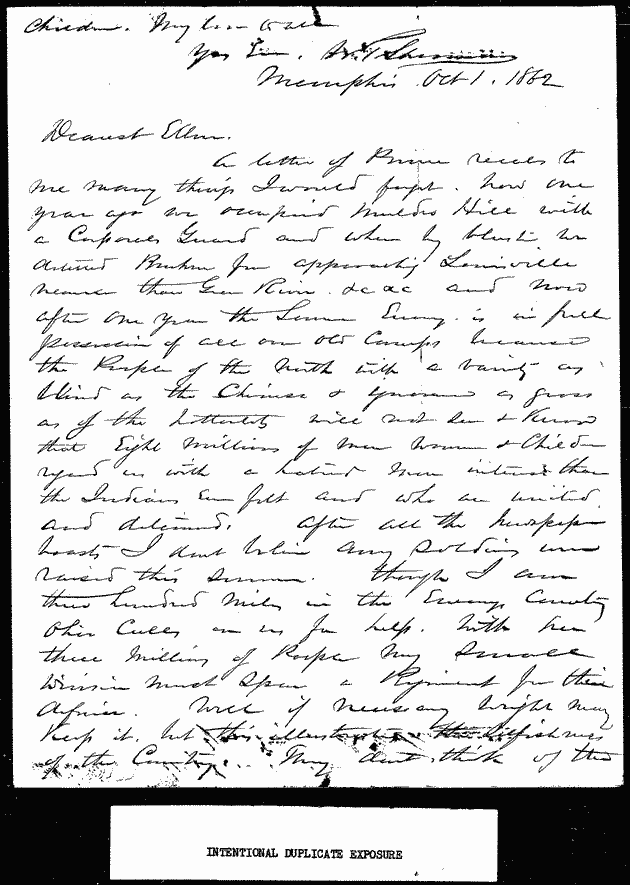 Children. My love to all
Yrs Ever, W. T. Sherman
Memphis. Oct 1. 1862
Dearest Ellen.
A letter of Prime recalls to
me many things I would forget. how one
year ago we occupied Muldros Hill with
a Corporals Guard and when by bluster we
deterred Buckner from approaching Louisville
nearer than Green River. &c &c and now
after one year the Same Enemy is in full
possession of all our old Camps because
the People of the North with a vanity as
blind as the Chinese & ignorance as gross
as of the Hottentots will not see & Know
that Eight Millions of Men Women & Children
regard us with a hatred more intense than
the Indians Ever felt and who are united
and determined. After all the Newspaper
boasts I dont believe any Soldiers were
raised this summer. though I am
three hundred miles in the Enemys Country
Ohio Calls on us for help. With her
three Millions of People my small
Division must spare a Regiment for their
defense. Well if necessary Wright may
Keep it. but this illustrates the selfishness
of the Country. They dont think of the
INTENTIONAL DUPLICATE EXPOSURE